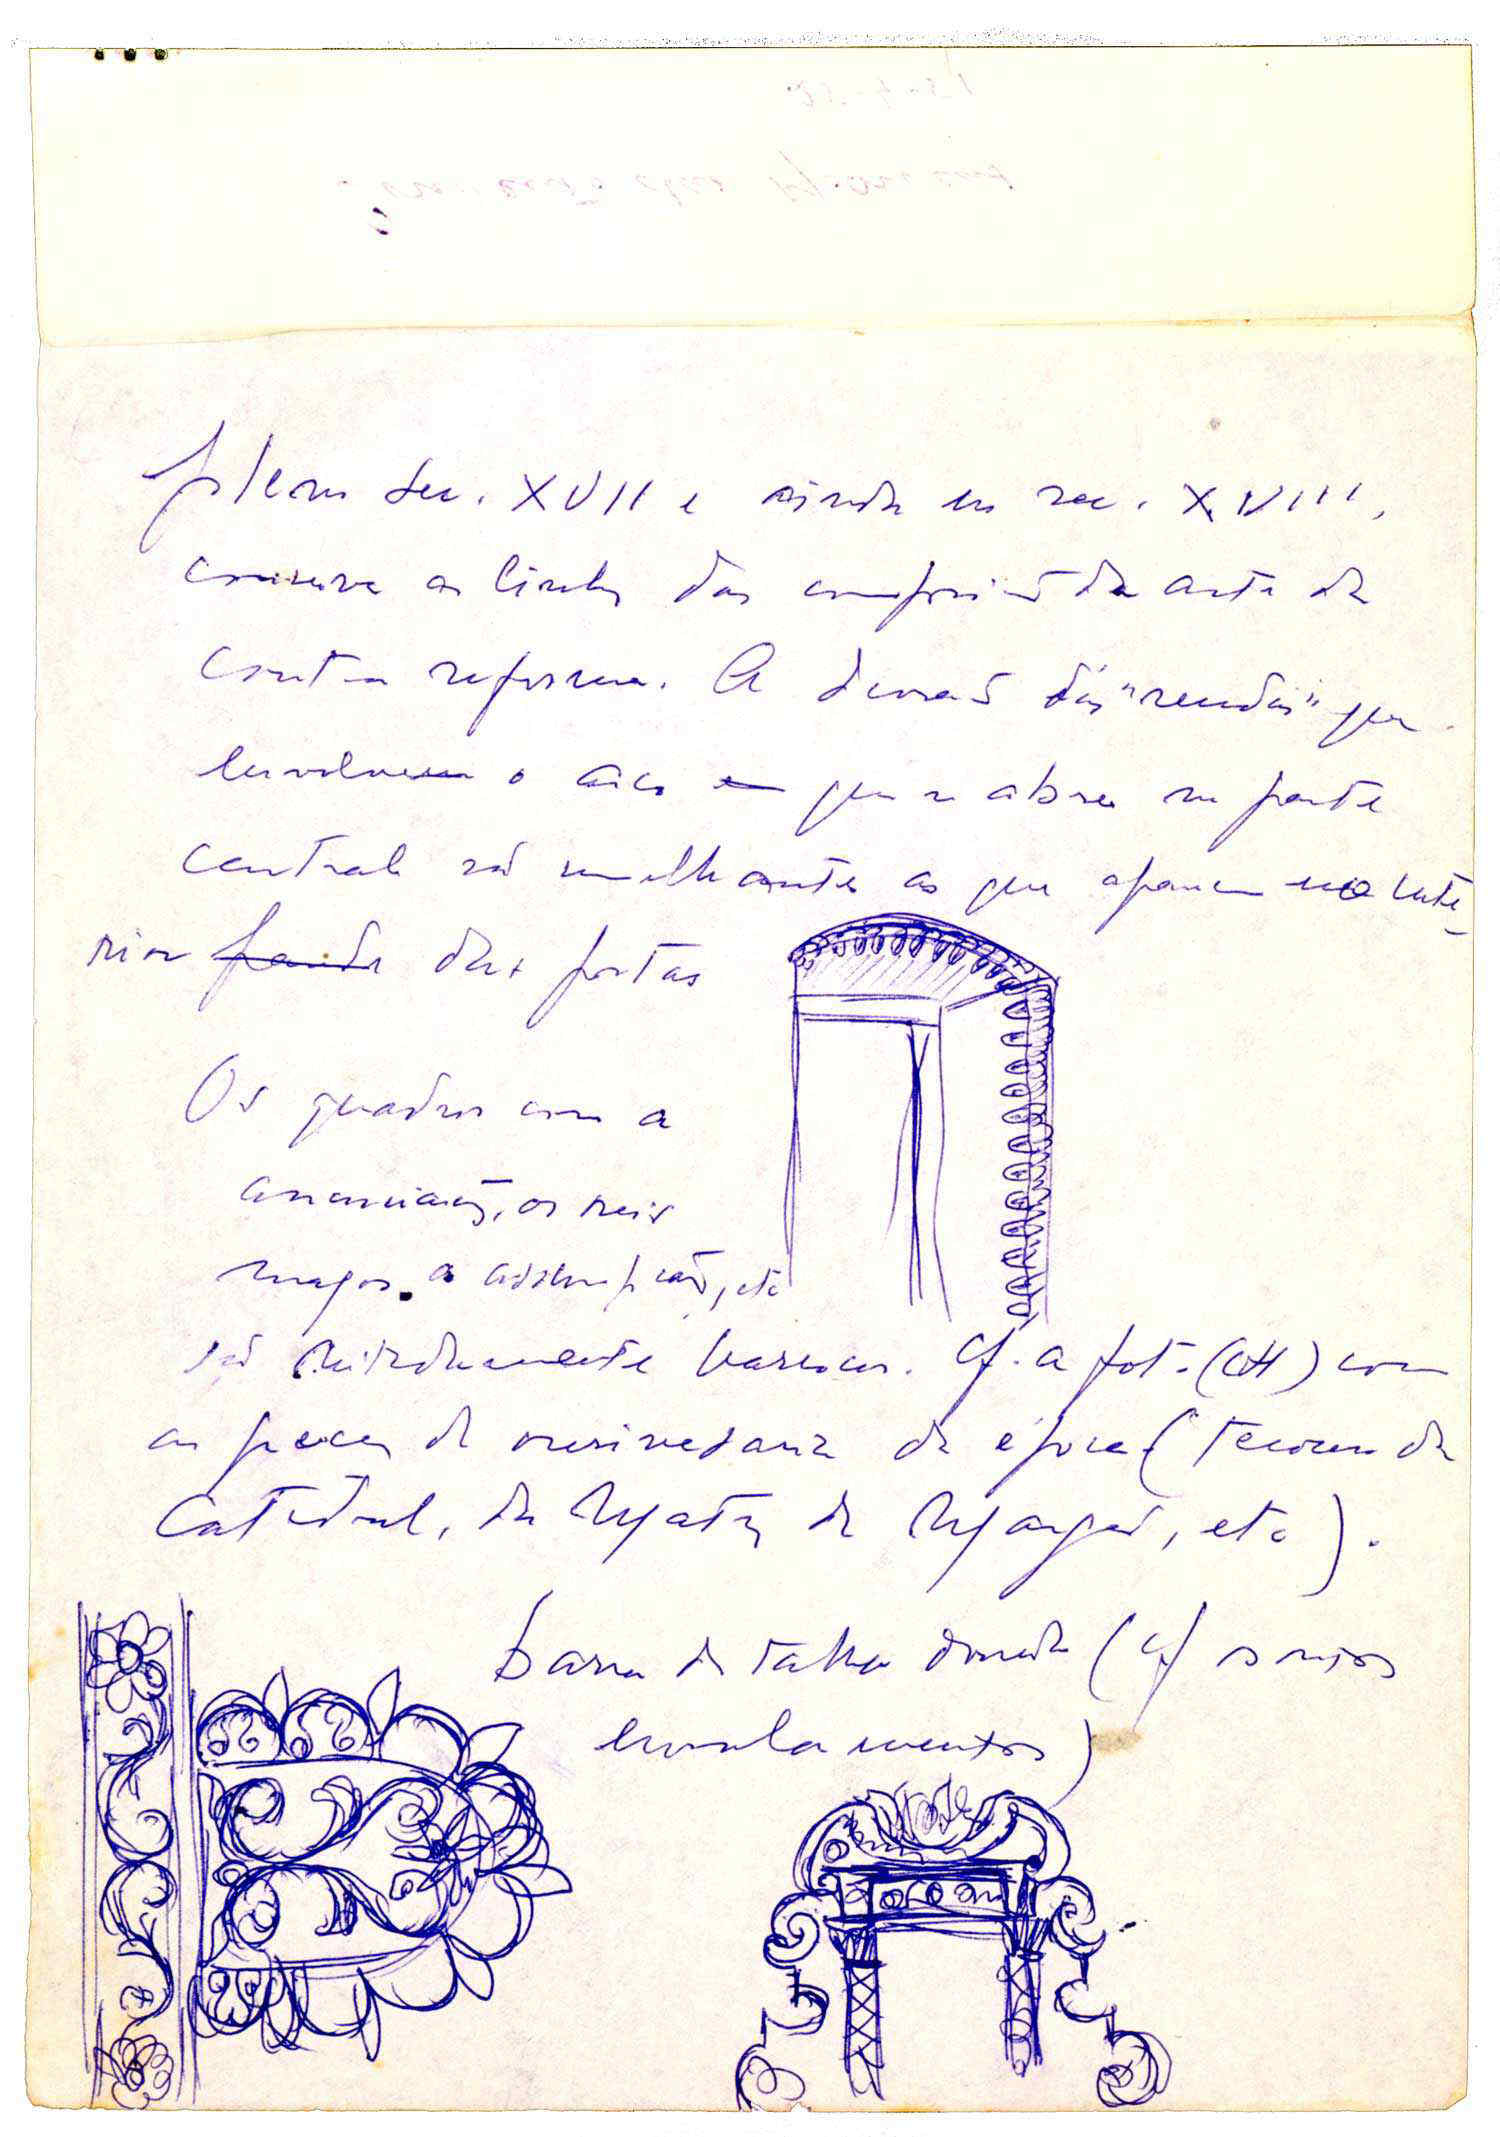 pleno sec. XVII e ainda no sec. XVIII,
conserva as linhas das composição da arte da
contra reforma. A das "rendas" que
envolvem o arco que se abre na parte
central são semelhantes as que aparecem no inte-
rior das portas
Os quadros com a
anunciação, os reis
magos, a assumpção, etc
são nitidamente barrocos. Cf. a fot. (CH) com
as peças de ourivesaria da época (tesouro da
Catedral, da Matriz de etc).
barra de talha dourada (cf os nossos